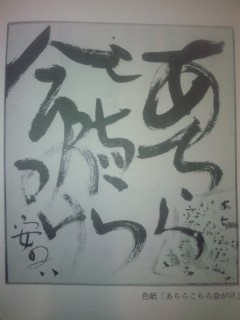 あちら
こちら
命がけ
安吾
色紙「あちらこちら命がけ」